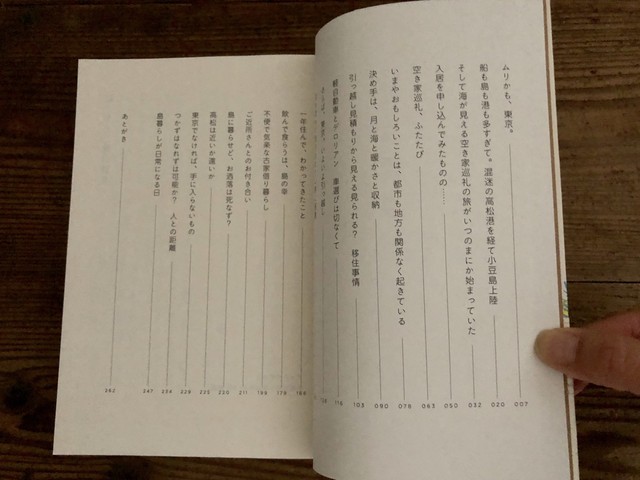 ムリかも、東京。 007
船も島も港も多すぎて。混迷の高松港を経て小豆島上陸 020
そして海が見える空き家巡礼の旅がいつのまにか始まっていた 032
入居を申し込んでみたものの…… 050
空き家巡礼、ふたたび 063
いまやおもしろいことは、都市も地方も関係なく起きている 076
決め手は、月と海と暖かさと収納 090
引っ越し見積もりから見える見られる? 移住事情 103
軽自動車とデロリアン 車選びは切なくて 116
一年住んで、わかってきたこと 168
飲んで食らうは、島の幸 179
不便で気楽な古家借り暮らし 199
ご近所さんとのお付き合い 211
島に暮らせど、お洒落は死なず? 220
高松は近いか遠いか 225
東京でなければ、手に入らないもの 229
つかずはなれずは可能か? 人との距離 236
島暮らしが日常になる日 247
あとがき 262